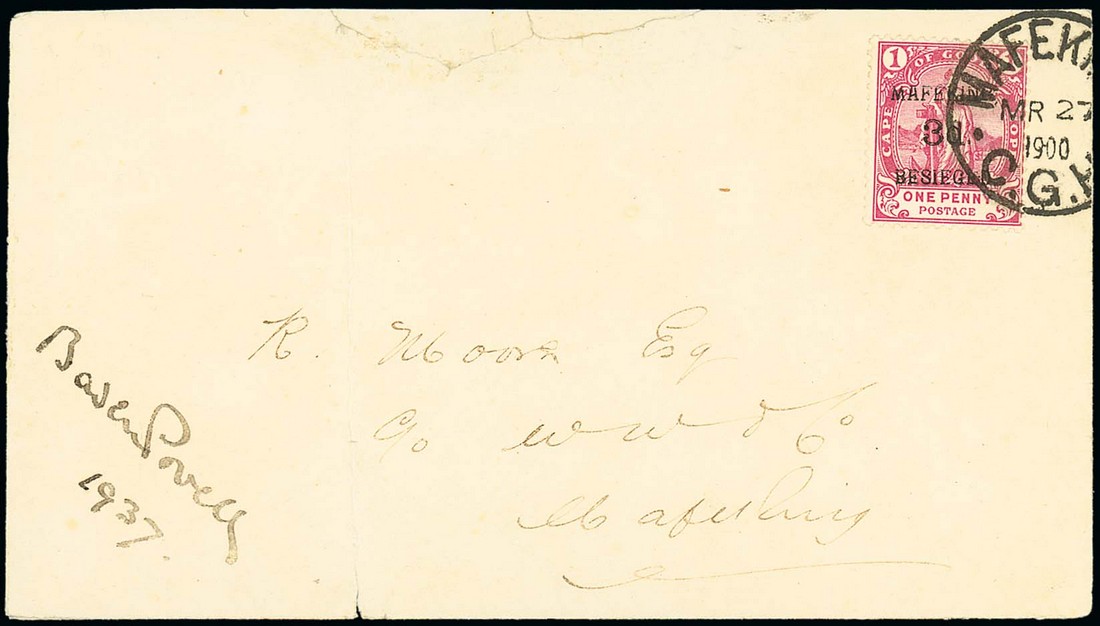 1
CAPE OF GO OP
MAFEKING
3d.
BESIEGED
ONE PENNY
POSTAGE
MAFEKI
MR 27
1900
C.G.H
R. Moore Esq
c/o W W & Co.
Mafeking
Baden Powell
1937.